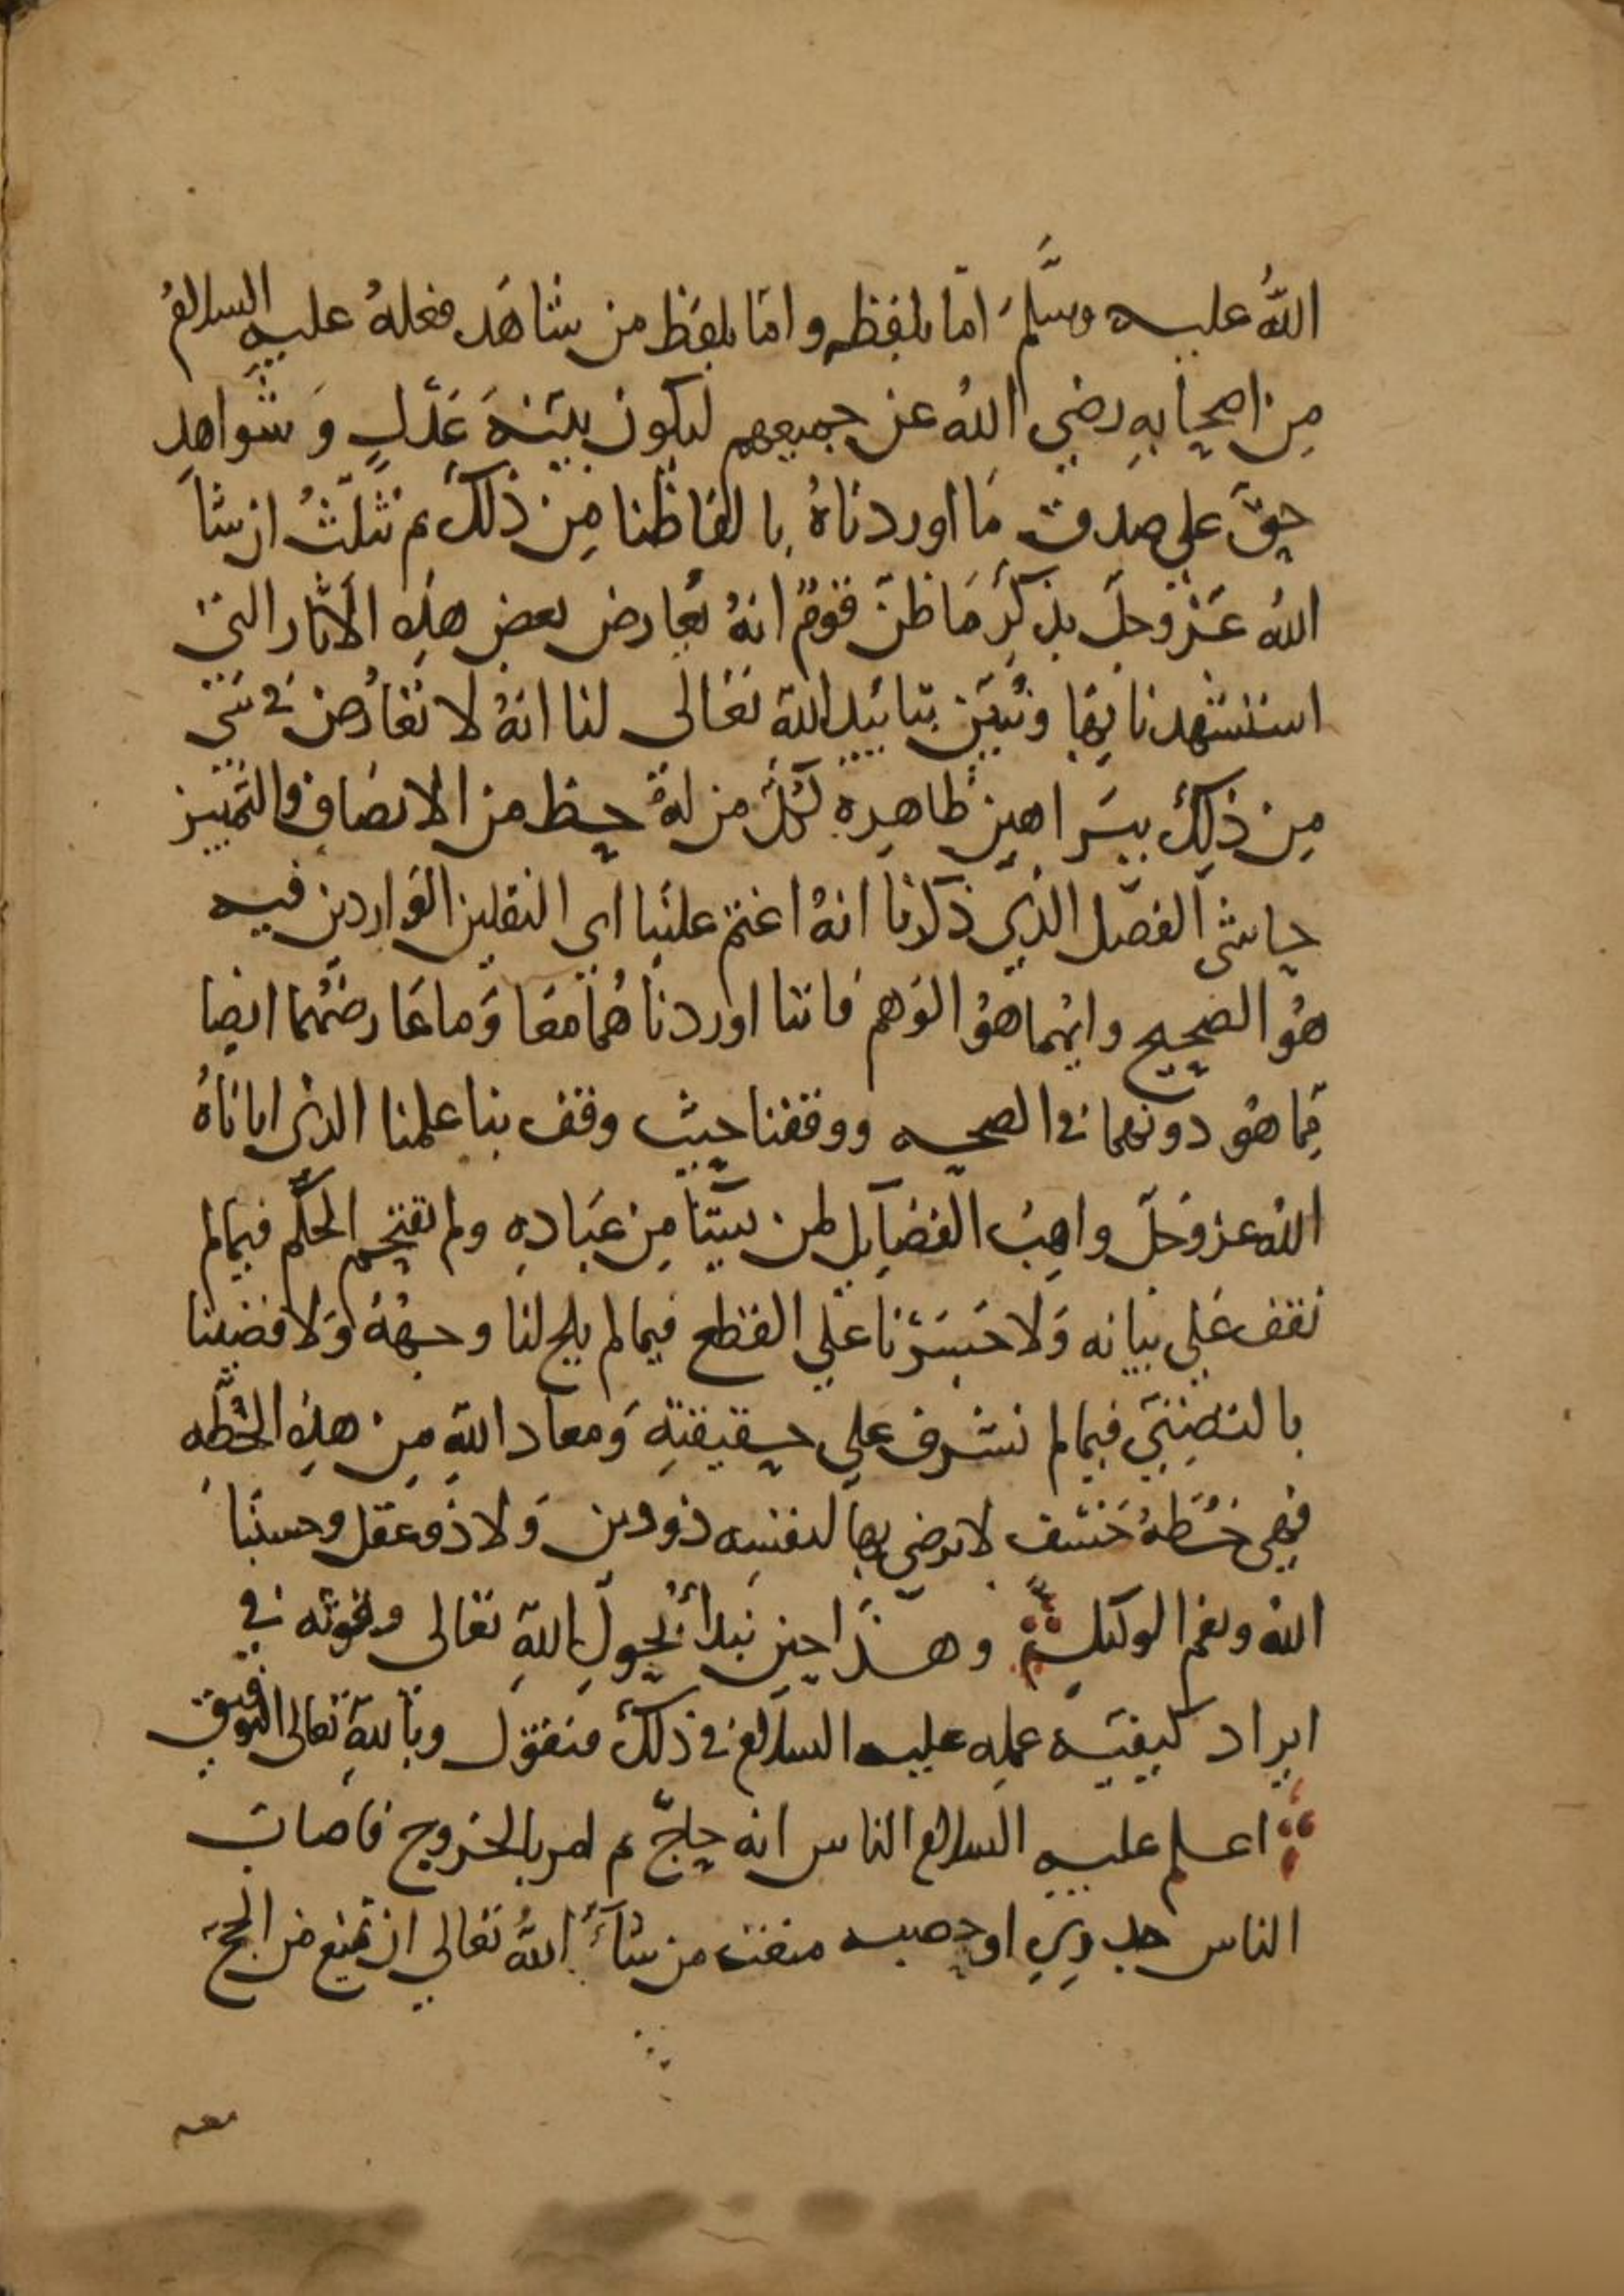 الله عليه وسلم اما بلفظه واما بلفظ من شاهد فعله عليه السلام
من اصحابه رضي الله عن جميعهم ليكون بينة عدل وشواهد
حق علي صدق ما اوردناه بالفاظنا من ذلك ثم نثلث ان شا
الله عز وجل بذكر ما ظن قوم انه يعارض بعض هذه الاثار التي
استشهدنا بها ونبين بتاييد الله تعالى لنا انه لا تعارض في شي
من ذلك ببراهين ظاهره لكل من له حظ من الانصاف والتمييز
حاشى الفصل الذي ذكرنا انه اغتم علينا اي النقلين الواردين فيه
هو الصحيح وايهما هو الوهم فاننا اوردناهما معا وما عارضهما ايضا
مما هو دونهما في الصحه ووقفنا حيث وقف بنا علمنا الذي اتاناه
الله عز وجل واهب الفضايل لمن يشا من عباده ولم نقتحم الحكم فيما لم
نقف علي بيانه ولا جسرنا علي القطع فيما لم يلح لنا وجهه ولا قضينا
بالتظنني فيما لم نشرف علي حقيقته ومعاد الله من هذه الخطه
فهي خطة خسف لا يرضى بها لنفسه ذو دين ولا ذو عقل وحسبنا
الله ونعم الوكيل وهذا حين نبدأ بحول الله تعالى وقوته في
ايراد كيفية عمله عليه السلام في ذلك فنقول وبالله تعالى التوفيق
اعلم عليه السلام الناس انه حاج ثم امر بالخروج فاصاب
الناس جدري او حصبه منعت من شاء الله تعالي ان تمنع من الحج
معه